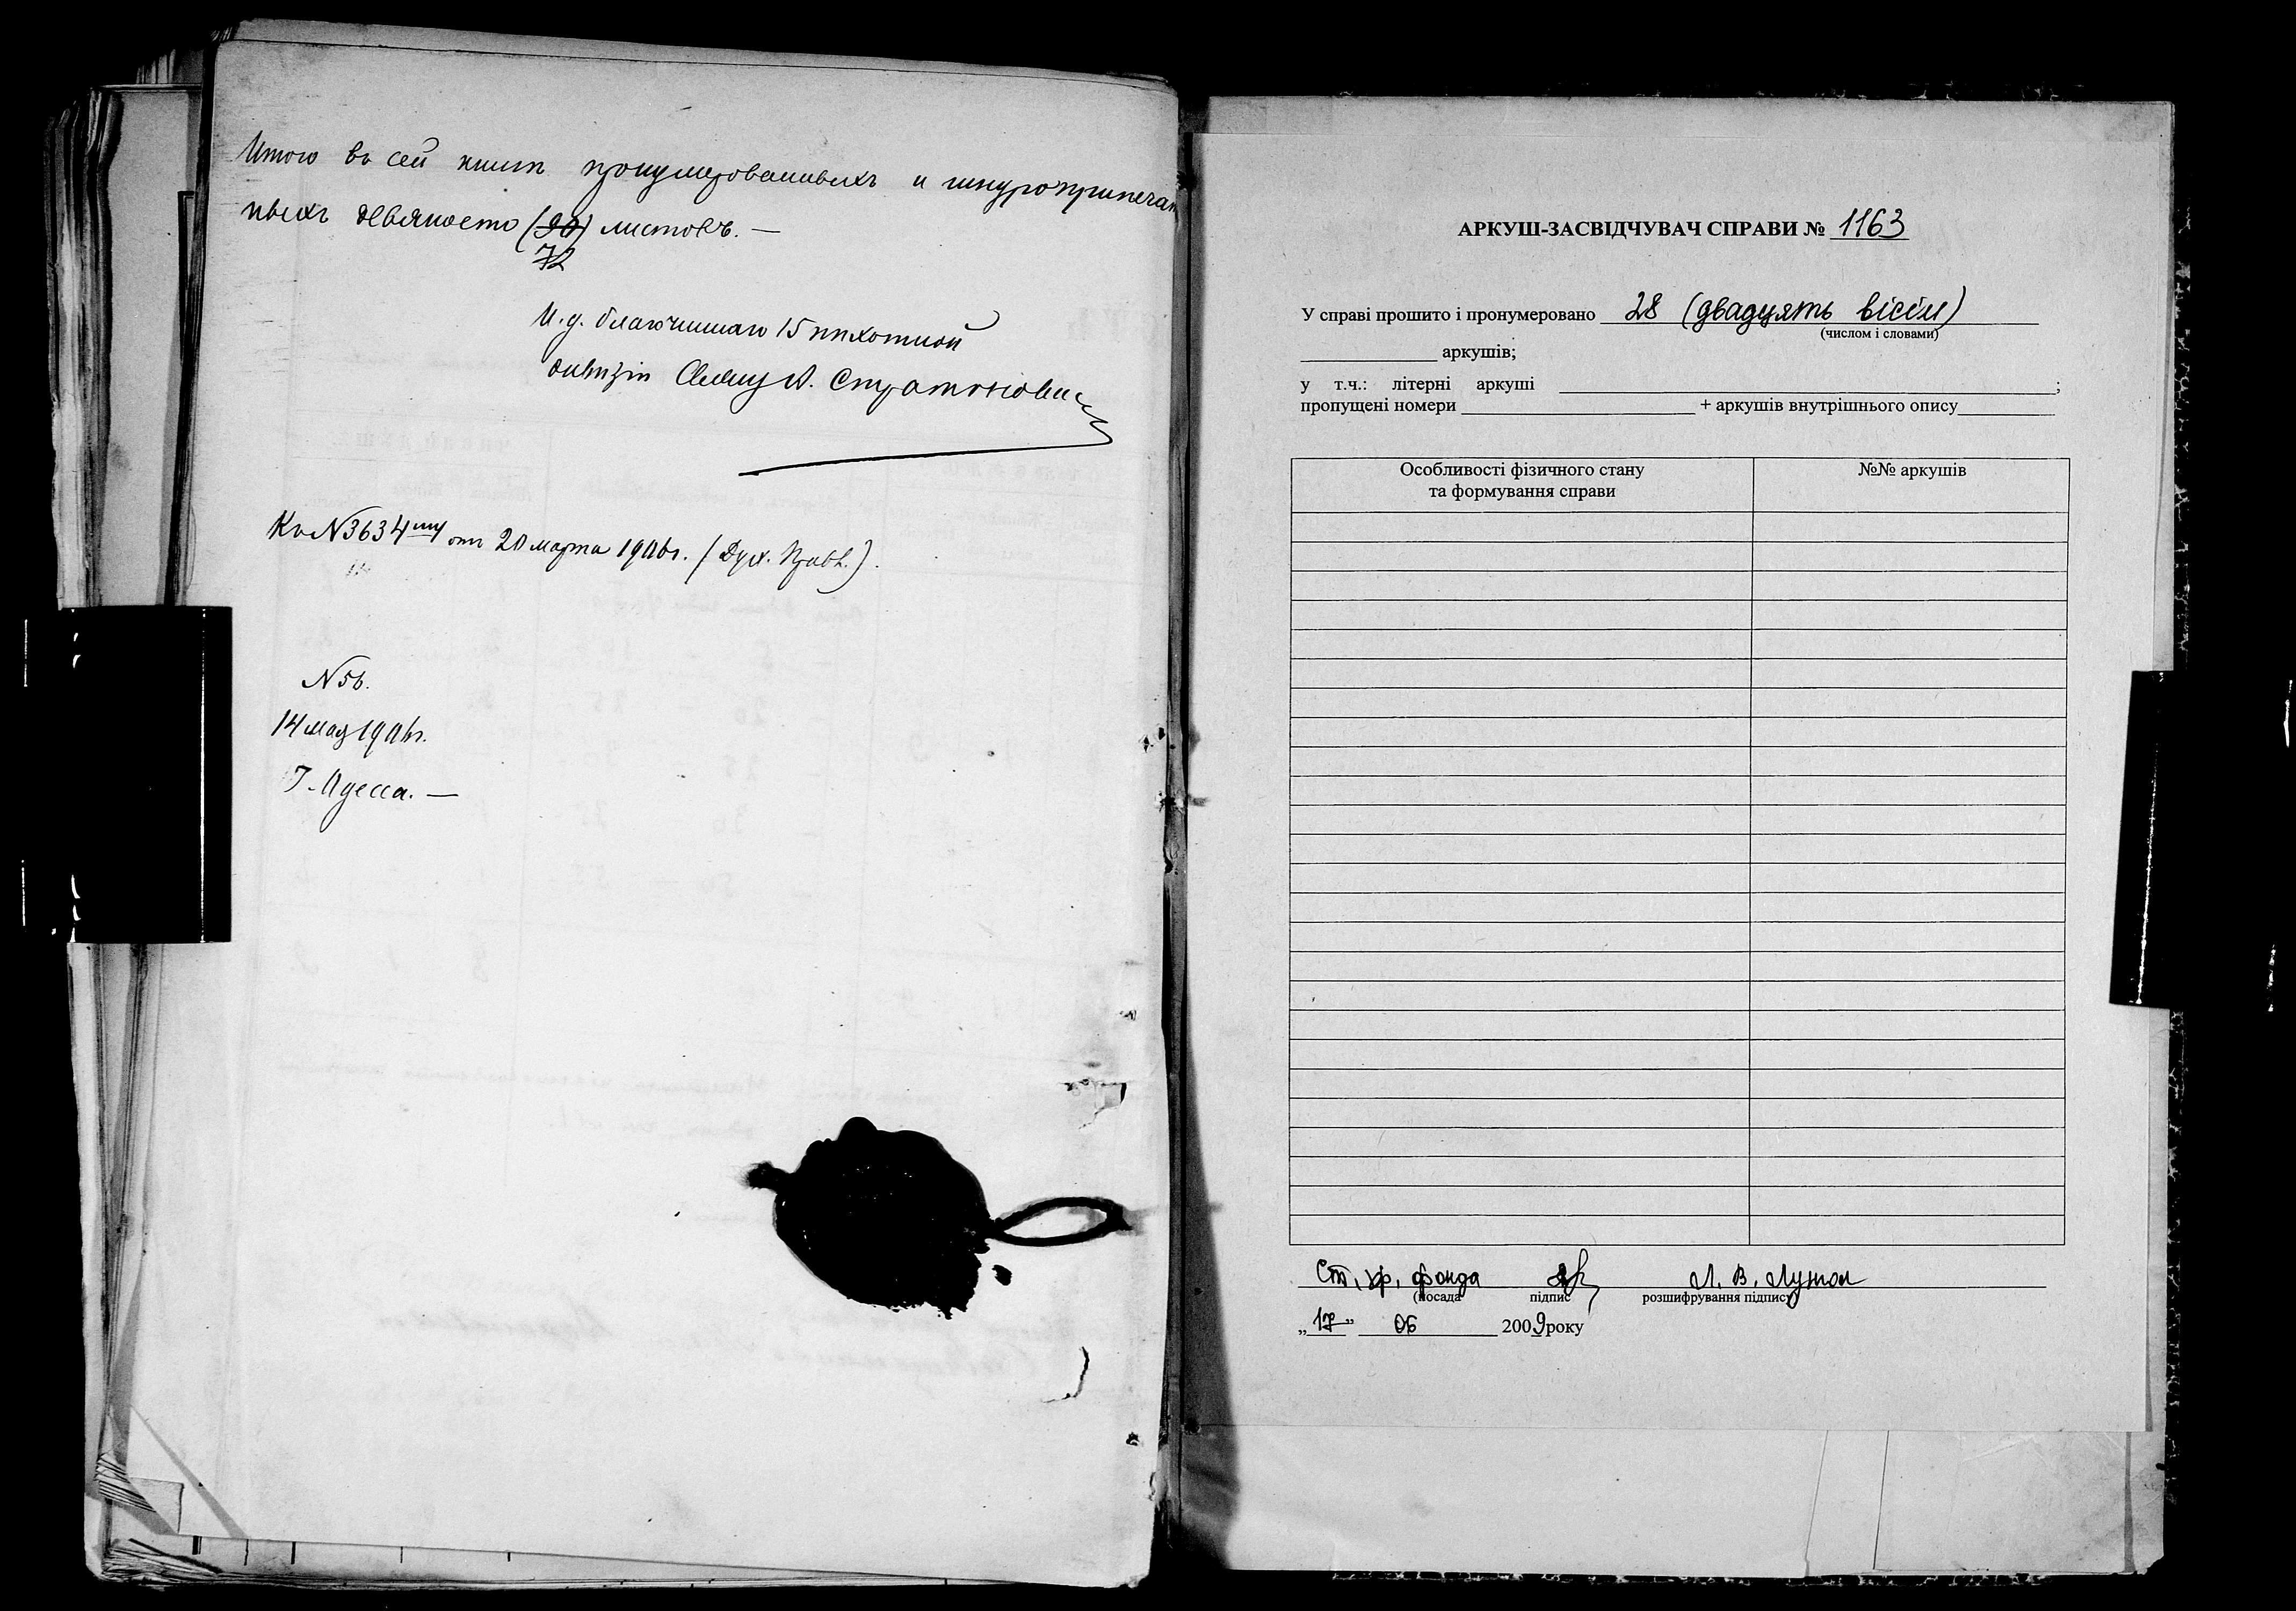 Итого въ сей книгѣ пронумерованныхъ и шнуроприпечатан
ныхъ девяносто (90) листовъ. —
72
И. д. благочиннаго 15 пѣхотной
дивизіи Свящ.
Къ № 3634му отъ 20 марта 1906г. (Дух. Правл.).
№ 56.
14 мая 1906г.
Г. Одесса. —
АРКУШ-ЗАСВІДЧУВАЧ СПРАВИ № 1163
У справі прошито і пронумеровано 28 (двадцять вісім)
(числом і словами)
аркушів;
у т.ч.: літерні аркуші ;
пропущені номери + аркушів внутрішнього опису
Особливості фізичного стану №№ аркушів
та формування справи
Ст. хр. фонда Л. В.
(посада підпис розшифрування підпису)
„17” 06 2009року